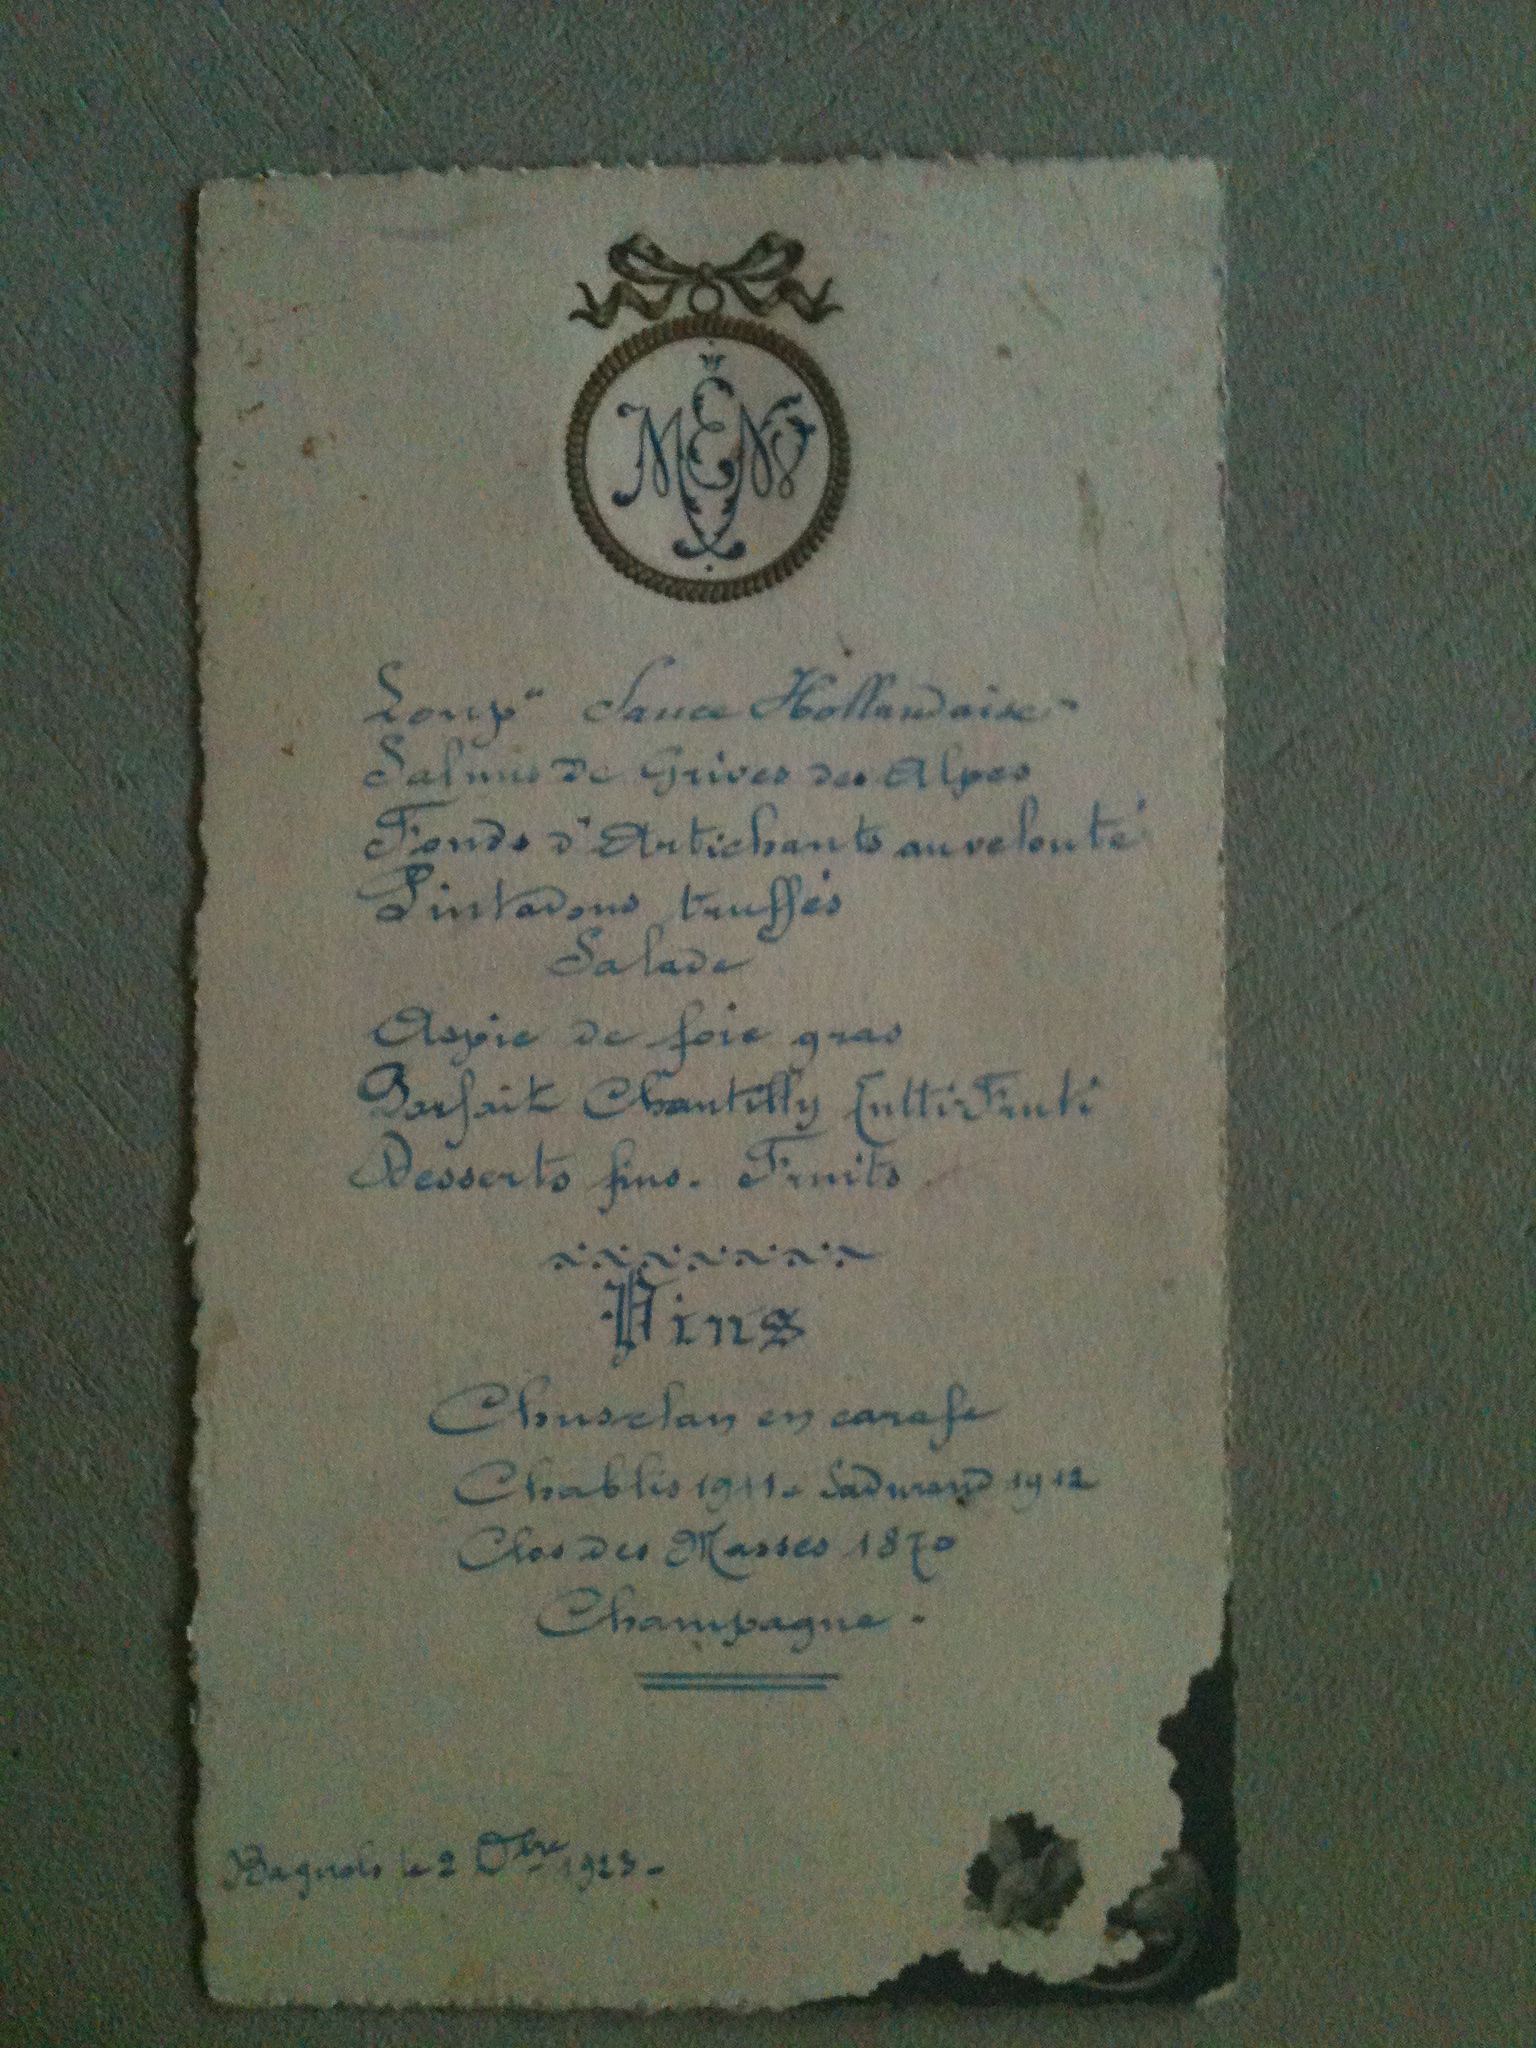 MENU
Loup" Sauce Hollandaise -
Salmis de Grives des Alpes
Fonds d'Artichauts au velouté
Pintadons truffés
Salade
Aspic de foie gras
Parfait Chantilly Tutti Fruti
Desserts fins. Fruits
Vins
Chusclan en carafe
Chablis 1911 - 1912
Clos des Masses 1870
Champagne -
Bagnols le 2 1923 -